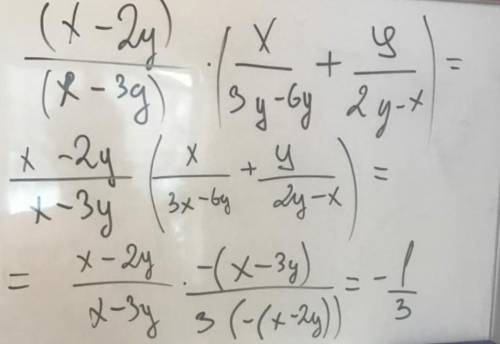 (x - 2y)/(x - 3y) · (x/(3y - 6y) + y/(2y - x)) =
(x - 2y)/(x - 3y) (x/(3x - 6y) + y/(2y - x)) =
= (x - 2y)/(x - 3y) · (-(x - 3y))/(3(-(x - 2y))) = -1/3